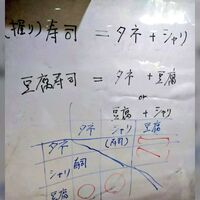 (握り)寿司 = タネ + シャリ
豆腐寿司 = タネ + 豆腐
or
豆腐 + シャリ
タネ シャリ 豆腐
タネ (寿司)
シャリ 寿司
豆腐